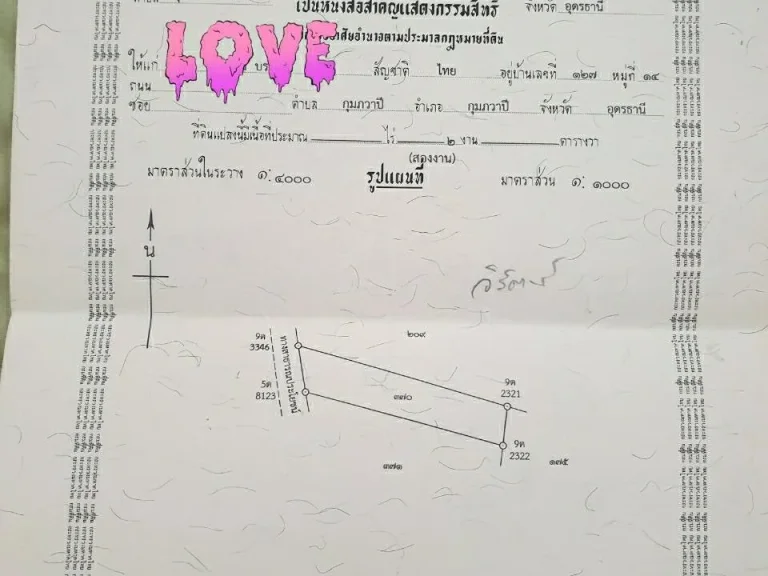 เป็นหนังสือสำคัญแสดงกรรมสิทธิ์ จังหวัด อุดรธานี
อาศัยอำนาจตามประมวลกฎหมายที่ดิน
LOVE
ให้แก่ สัญชาติ ไทย อยู่บ้านเลขที่ ๑๒๗ หมู่ที่ ๑๔
ถนน
ซอย ตำบล กุมภวาปี อำเภอ กุมภวาปี จังหวัด อุดรธานี
ที่ดินแปลงนี้มีเนื้อที่ประมาณ ไร่ ๒ งาน ตารางวา
(สองงาน)
มาตราส่วนในระวาง ๑: ๔๐๐๐ รูปแผนที่ มาตราส่วน ๑: ๑๐๐๐
น
๒๐๙
9ต
3346
ทางสาธารณประโยชน์
5ต
8123
๓๗๐
9ต
2321
9ต
2322
๓๗๑
๑๗๕